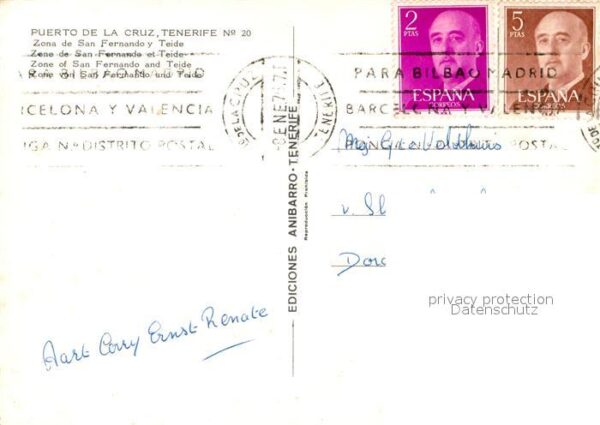 PUERTO DE LA CRUZ, TENERIFE Nº 20
Zona de San Fernando y Teide
Zone de San Fernando et Teide
Zone of San Fernando and Teide
Zone von San Fernando und Teide
2
PTAS
ESPAÑA
CORREOS
5
PTAS
ESPAÑA
CORREOS
BILBAO MADRID
CELONA Y VALENCIA
NGA Nº DISTRITO POSTAL
DE LA CRUZ
TENERIFE
PARA BILBAO MADRID
BARCELONA Y VALEN
PONGA Nº DISTRITO POSTAL
EDICIONES ANIBARRO - TENERIFE
Reproducción Prohibida
v. Sl
Dorc
Aart Corry Ernst Renate
privacy protection
Datenschutz